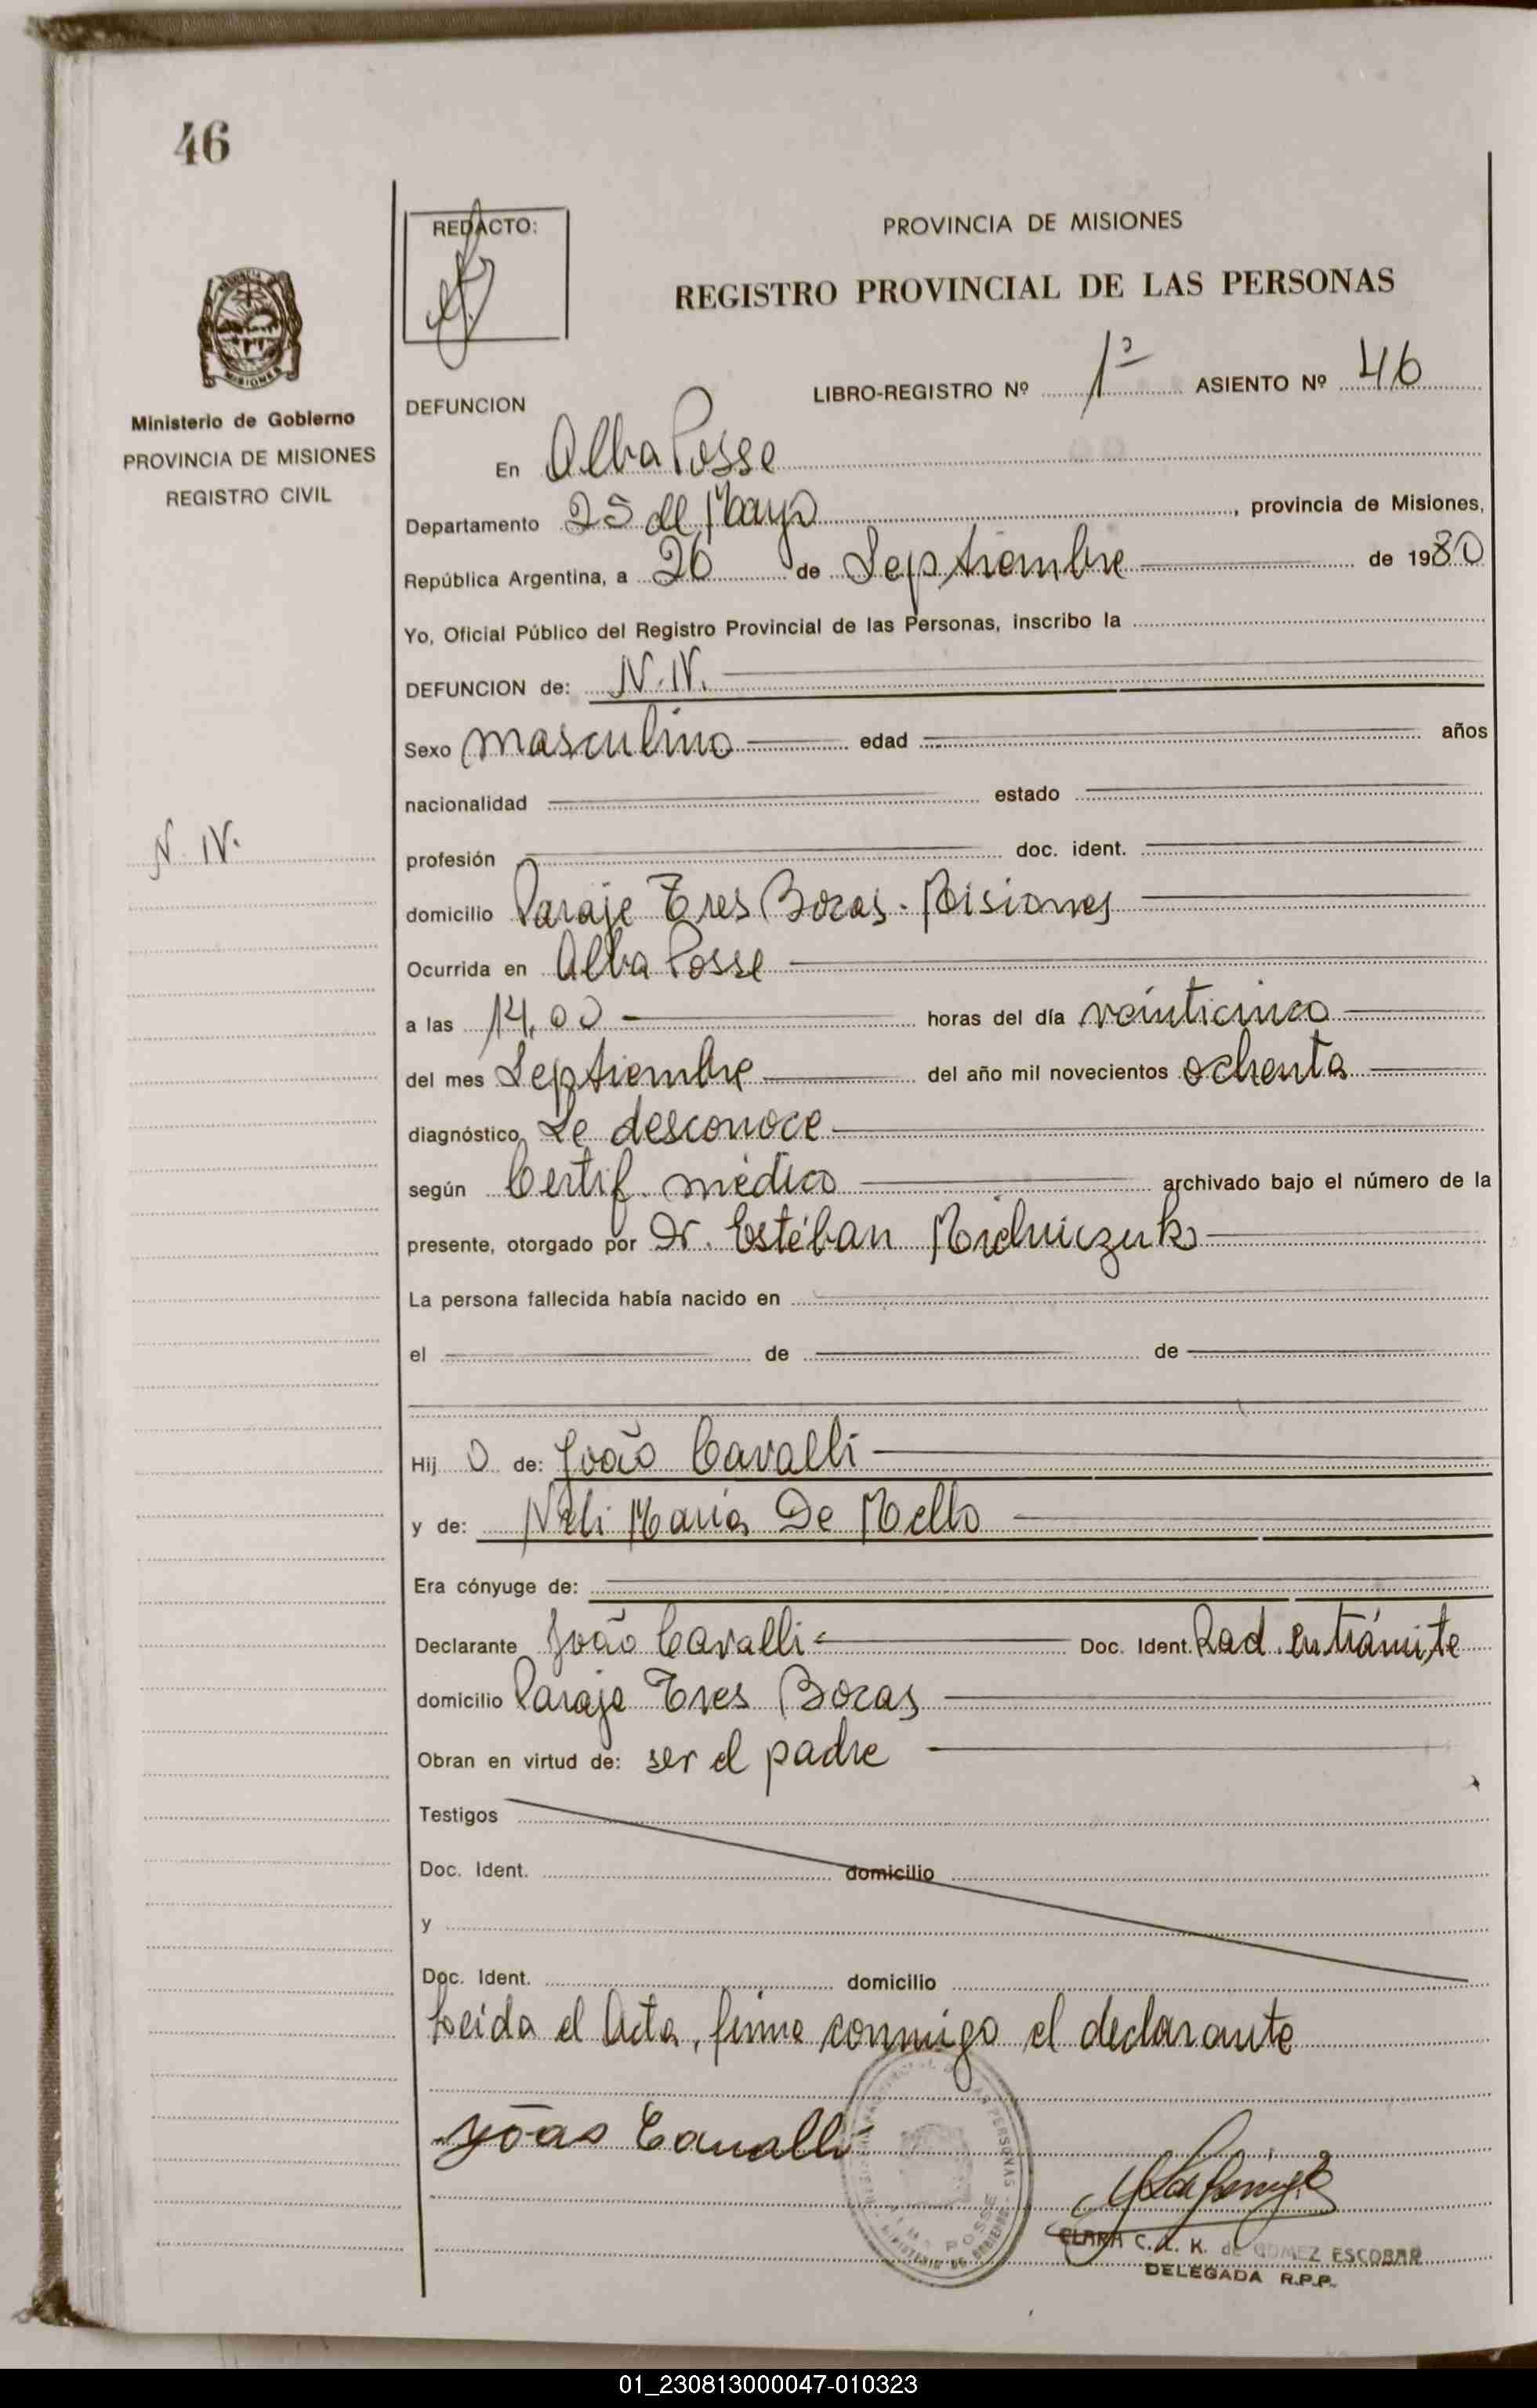 46
REDACTO:
PROVINCIA DE MISIONES
REGISTRO PROVINCIAL DE LAS PERSONAS
Ministerio de Gobierno
PROVINCIA DE MISIONES
REGISTRO CIVIL
LIBRO-REGISTRO Nº 1º ASIENTO Nº 46
DEFUNCION
En Alba Posse
Departamento 25 de Mayo, provincia de Misiones,
República Argentina, a 26 de Septiembre de 1980
Yo, Oficial Público del Registro Provincial de las Personas, inscribo la
DEFUNCION de: N.N.
Sexo masculino edad años
nacionalidad estado
N. N.
profesión doc. ident.
domicilio Paraje Tres Bocas - Misiones
Ocurrida en Alba Posse
a las 14,00 horas del día veinticinco
del mes Septiembre del año mil novecientos ochenta
diagnóstico Se desconoce
según Certif. médico archivado bajo el número de la
presente, otorgado por Dr. Estéban
La persona fallecida había nacido en
el de de
Hij o de: João Cavalli
y de: Neli María De Mello
Era cónyuge de:
Declarante João Cavalli Doc. Ident. Rad. en trámite
domicilio Paraje Tres Bocas
Obran en virtud de: ser el padre
Testigos
Doc. Ident. domicilio
y
Doc. Ident. domicilio
Leida el Acta, firma conmigo el declarante
João Cavalli
CLARA C. A. K. de GOMEZ ESCOBAR
DELEGADA R.P.P.
01_230813000047-010323